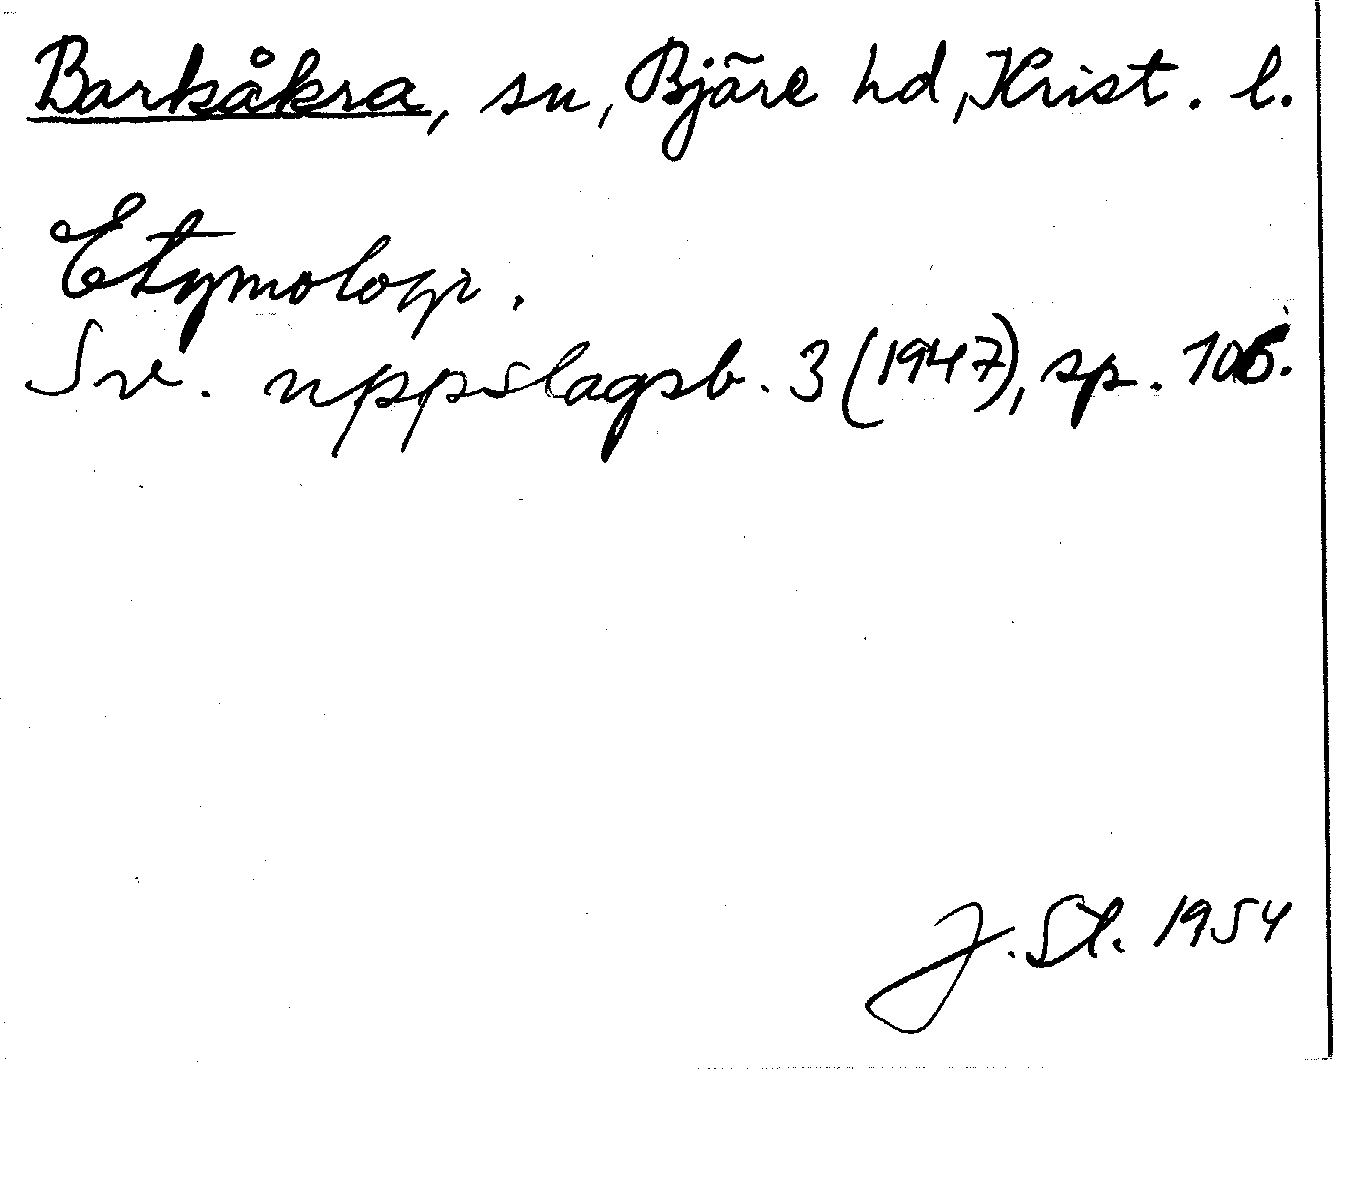 Barkåkra, sn, Bjäre hd, Krist. l.
Etymologi.
Sv. uppslagsb. 3 (1947), sp. 106.
J. Sl. 1954